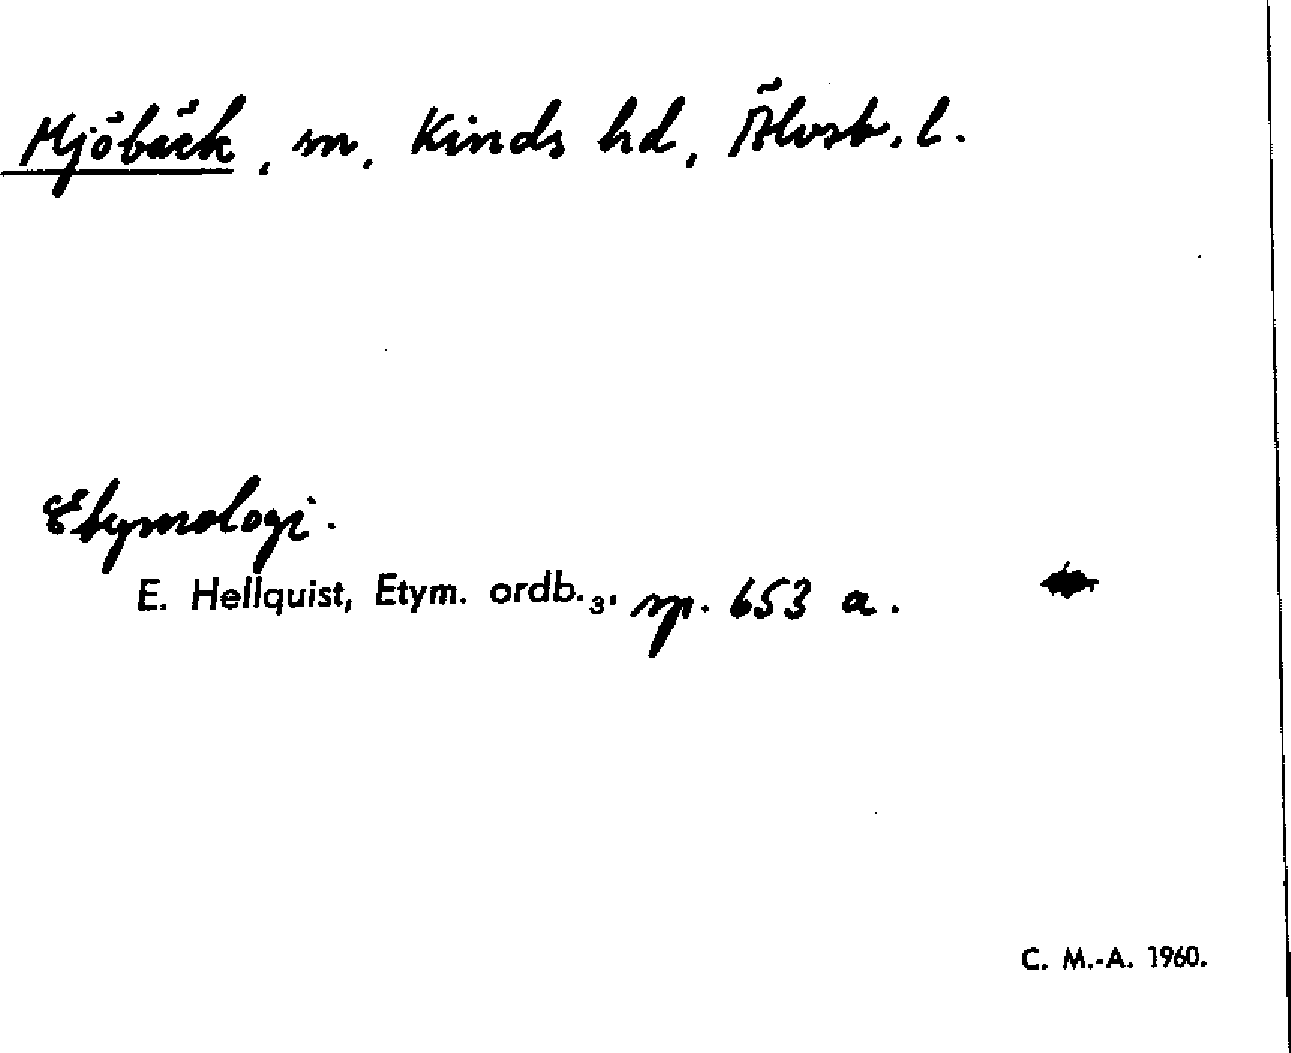 Mjöbäck, sn, Kinds hd, Älvsb. l.
Etymologi.
E. Hellquist, Etym. ordb.₃, sp. 653 a.
C. M.-A. 1960.